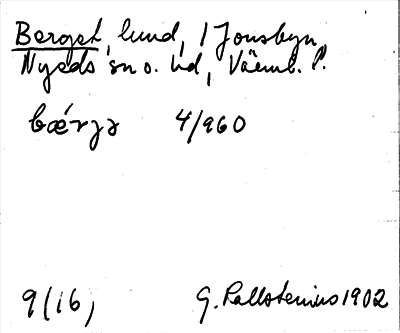 Berget, lund, i Jonsbyn,
Nyeds sn o. hd, Värml. l.
bǽrjə 4/960
9(16) G. Kallstenius 1902